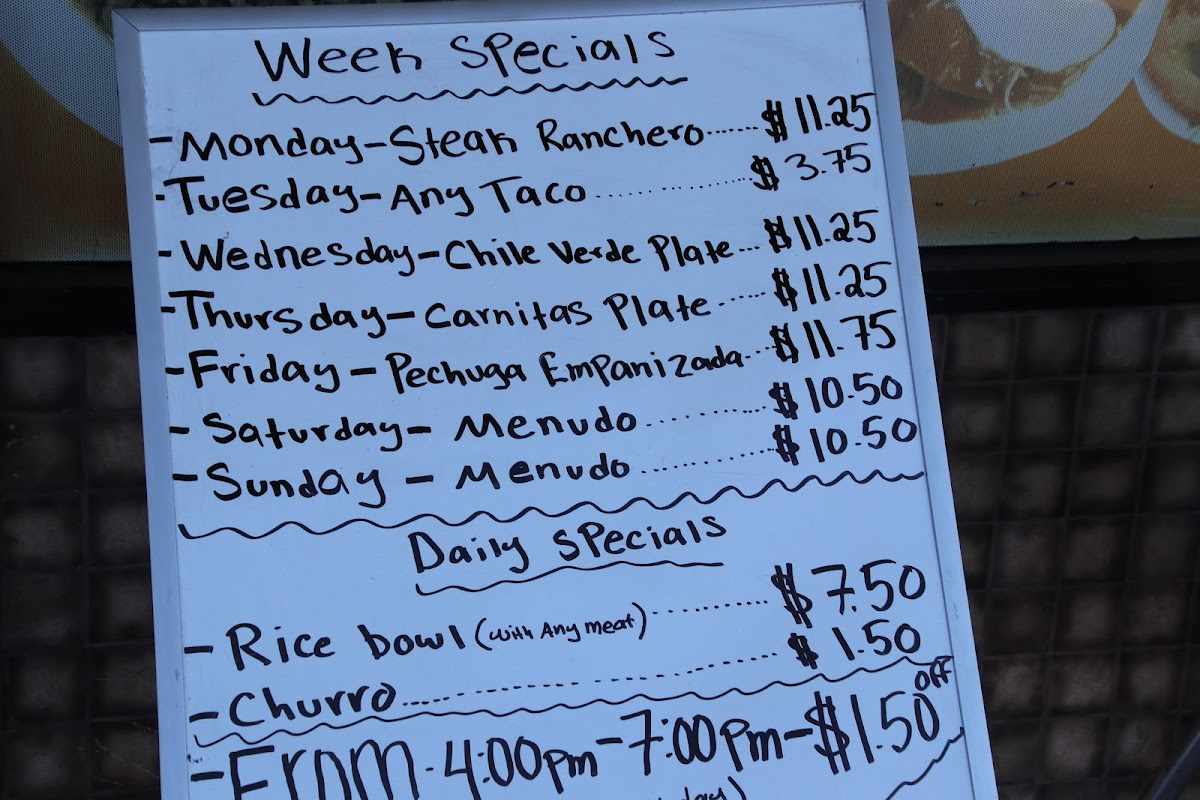 Week Specials
- Monday - Steak Ranchero ...... $11.25
- Tuesday - Any Taco ............... $3.75
- Wednesday - Chile Verde Plate ... $11.25
- Thursday - Carnitas Plate ...... $11.25
- Friday - Pechuga Empanizada ... $11.75
- Saturday - Menudo ............ $10.50
- Sunday - Menudo ............ $10.50
Daily Specials
- Rice bowl (with Any meat) ............ $7.50
- Churro .................. $1.50
- From 4:00pm - 7:00pm - $1.50 off